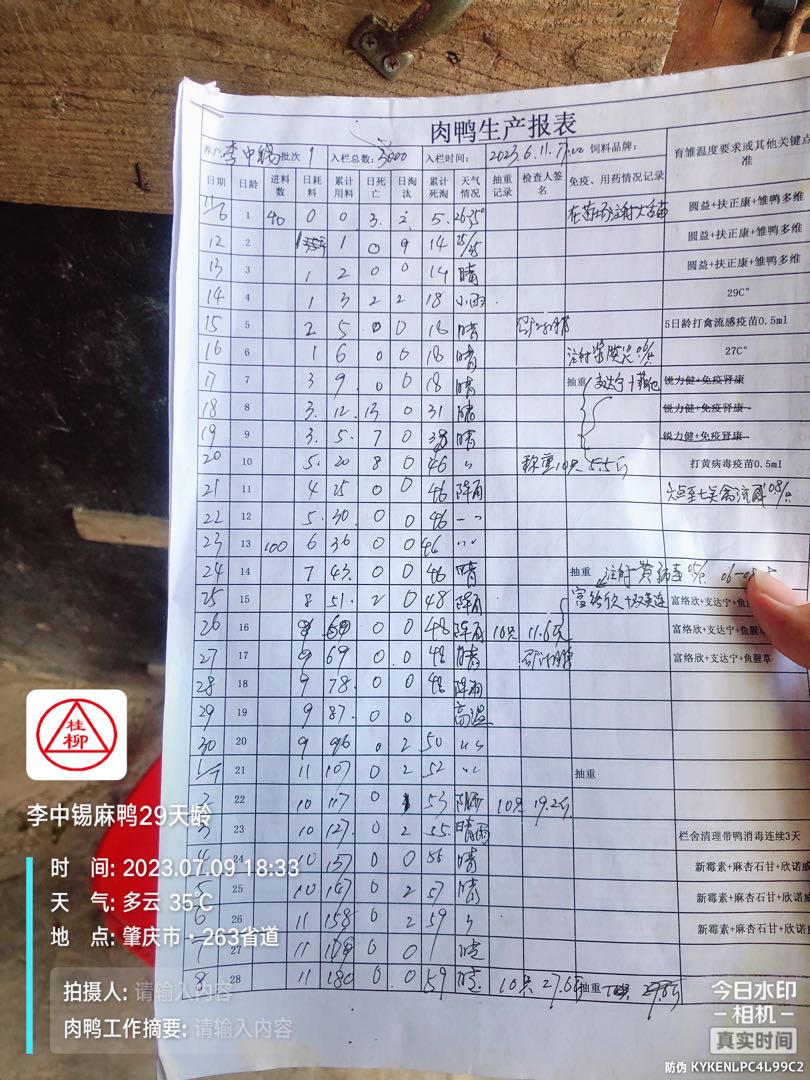 肉鸭生产报表
养户 李中锡 批次 1 入栏总数: 3000 入栏时间: 2023.6.11. 饲料品牌: 育雏温度要求或其他关键点
准
日期 日龄 进料数 日耗料 累计用料 日死亡 日淘汰 累计死淘 天气情况 抽重记录 检查人签名 免疫、用药情况记录
11/6 1 40 0 0 3 2 5 26-35° 圆益+扶正康+雏鸭多维
12 2 1 0 9 14 圆益+扶正康+雏鸭多维
13 3 1 2 0 0 14 晴 圆益+扶正康+雏鸭多维
14 4 1 3 2 2 18 小雨 29C°
15 5 2 5 0 0 18 晴 5日龄打禽流感疫苗0.5ml
16 6 1 6 0 0 18 晴 27C°
17 7 3 9 0 0 18 晴 抽重 支达宁+ 锐力健+免疫肾康
18 8 3 12 13 0 31 晴 锐力健+免疫肾康
19 9 3 5 7 0 38 晴 锐力健+免疫肾康
20 10 5 20 8 0 46 〃 称重10只5.5斤 打黄病毒疫苗0.5ml
21 11 4 25 0 0 46 降雨
22 12 5 30 0 0 46
23 13 100 6 36 0 0 46 〃
24 14 7 43 0 0 46 晴 抽重 注射黄病毒
25 15 8 51 2 0 48 降雨 富络欣+双黄连 富络欣+支达宁+鱼
26 16 9 60 0 0 48 降雨 10只 11.6斤 富络欣+支达宁+鱼腥草
27 17 9 69 0 0 48 晴 富络欣+支达宁+鱼腥草
28 18 9 78 0 0 48 降雨
29 19 9 87 0 0 高温
30 20 9 96 0 2 50 〃
1/7 21 11 107 0 2 52 〃 抽重
2 22 10 117 0 1 53 降雨 10只 19.2斤
3 23 10 127 0 2 55 晴雨 栏舍清理带鸭消毒连续3天
4 24 10 137 0 0 55 晴 新霉素+麻杏石甘+欣诺威
5 25 10 147 0 2 57 晴 新霉素+麻杏石甘+欣诺威
6 26 11 158 0 2 59 〃 新霉素+麻杏石甘+欣诺威
7 27 11 169 0 0 晴
8 28 11 180 0 0 59 晴 10只 27.6斤 抽重
桂柳
李中锡麻鸭29天龄
时 间: 2023.07.09 18:33
天 气: 多云 35℃
地 点: 肇庆市·263省道
拍摄人: 请输入内容
肉鸭工作摘要: 请输入内容
今日水印
-相机-
真实时间
防伪 KYKENLPC4L99C2